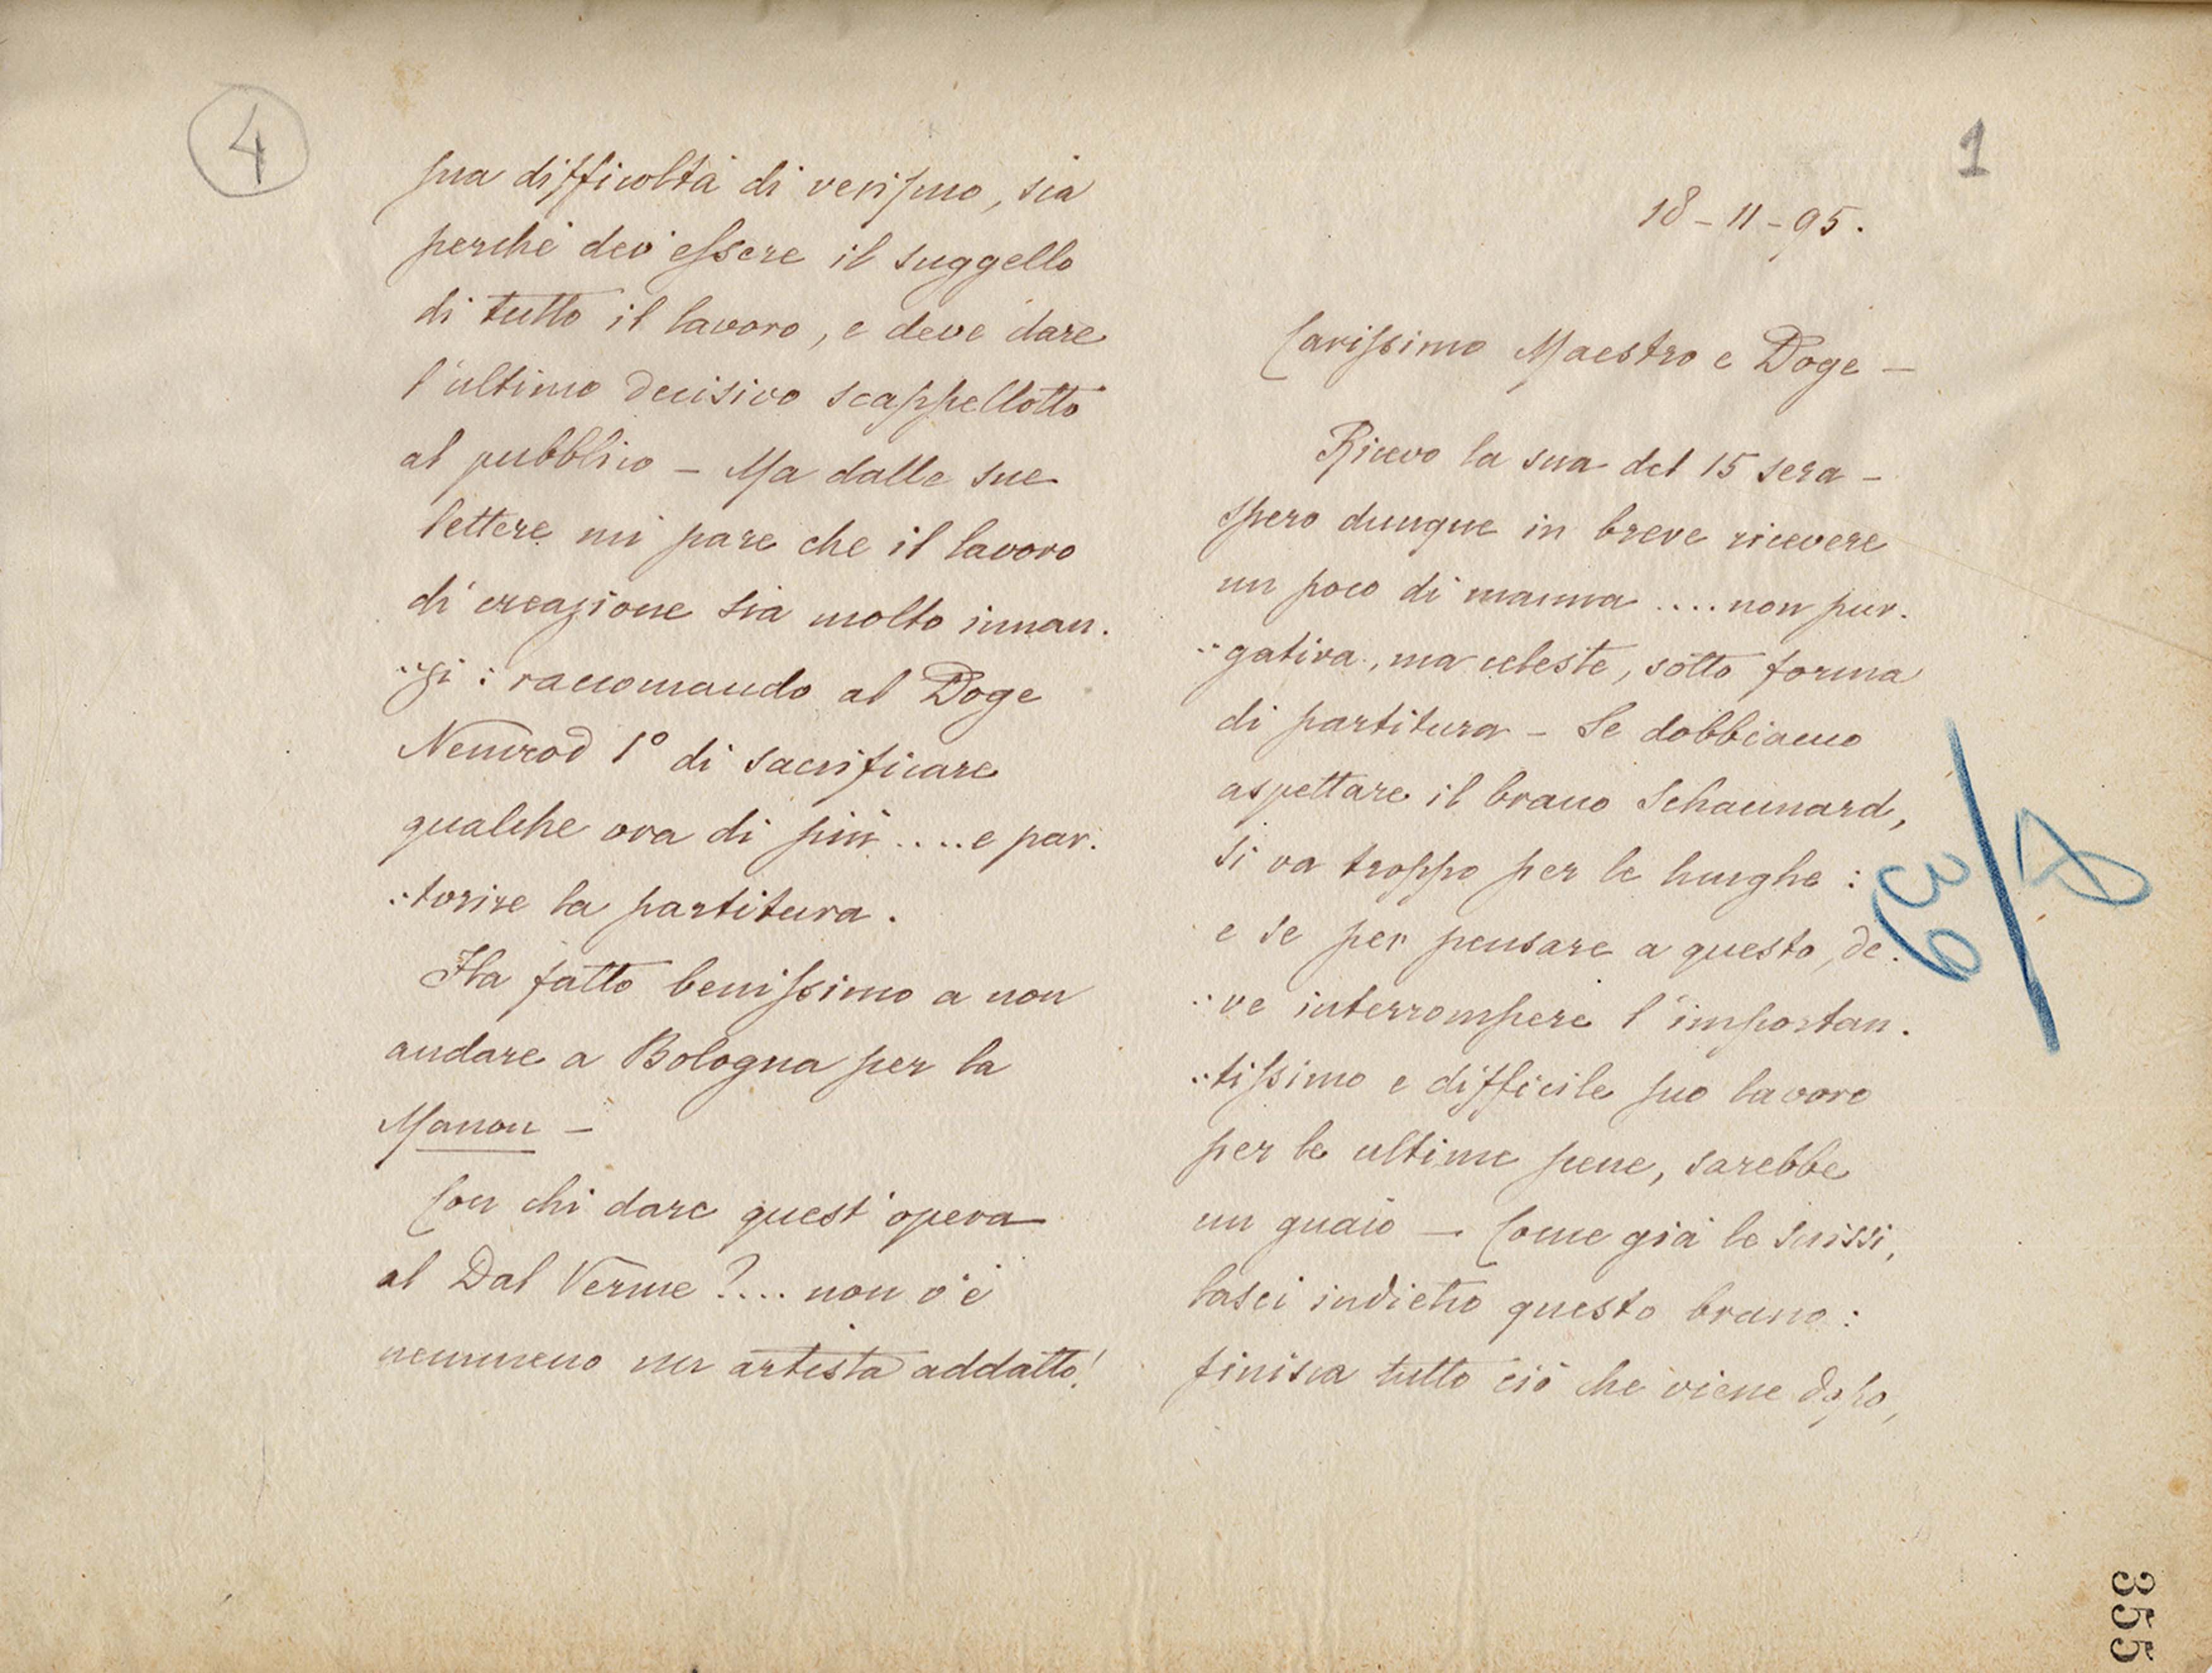 4
sua difficoltà di verismo, sia
perchè dev'essere il suggello
di tutto il lavoro, e deve dare
l'ultimo decisivo scappellotto
al pubblico – Ma dalle sue
lettere mi pare che il lavoro
di creazione sia molto innan.
..zi : raccomando al Doge
Nemrod 1º di sacrificare
qualche ora di più .... e par.
.:torire la partitura.
Ha fatto benissimo a non
andare a Bologna per la
Manon –
Con chi dare quest'opera
al Dal Verme ?.... non v'è
nemmeno un artista addatto!
1
18 – 11 – 95.
Carissimo Maestro e Doge –
Ricevo la sua del 15 sera –
spero dunque in breve ricevere
un poco di manna .... non pur.
..gativa, ma celeste, sotto forma
di partitura – Se dobbiamo
aspettare il brano Schaunard,
si va troppo per le lunghe :
e se per pensare a questo, de.
.:ve interrompere l'importan.
.:tissimo e difficile suo lavoro
per le ultime scene, sarebbe
un guaio – Come già le scrissi,
lasci indietro questo brano :
finisca tutto ciò che viene dopo,
355